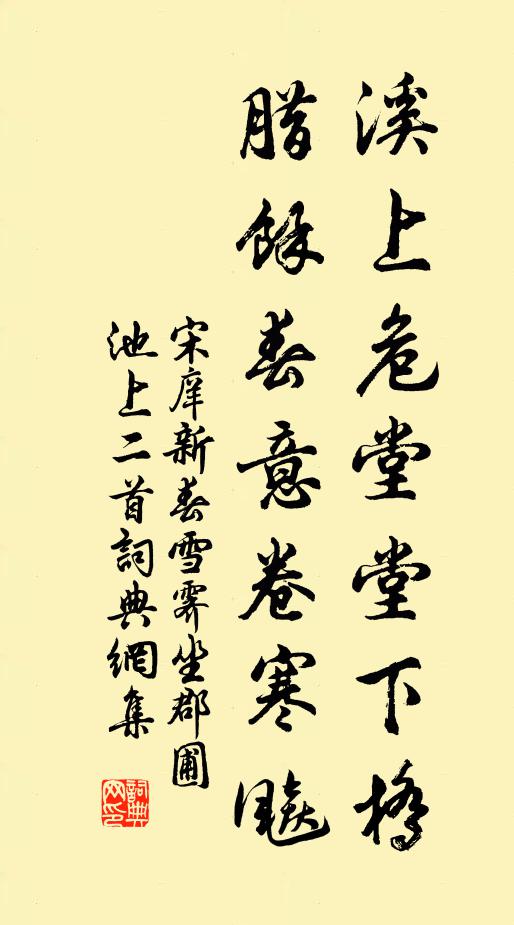 溪上危堂堂下橋
腊餘春意卷寒飈
宋庠新春雪霽坐郡圃
池上二首詞典網集
詞典
网印